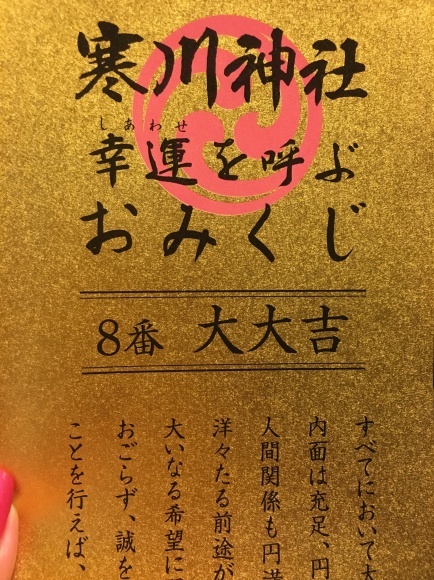 寒川神社
しあわせ
幸運を呼ぶ
おみくじ
8番 大大吉
すべてにおいて大
内面は充足、円
人間関係も円満
洋々たる前途が
大いなる希望に
おごらず、誠を
ことを行えば、